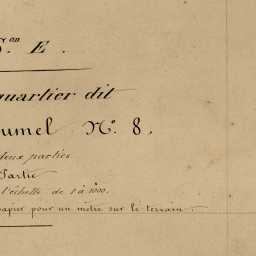 Son E.
quartier dit
oumel No. 8.
deux parties
Partie
l'échelle de 1 à 1000.
papier pour un mètre sur le terrain.